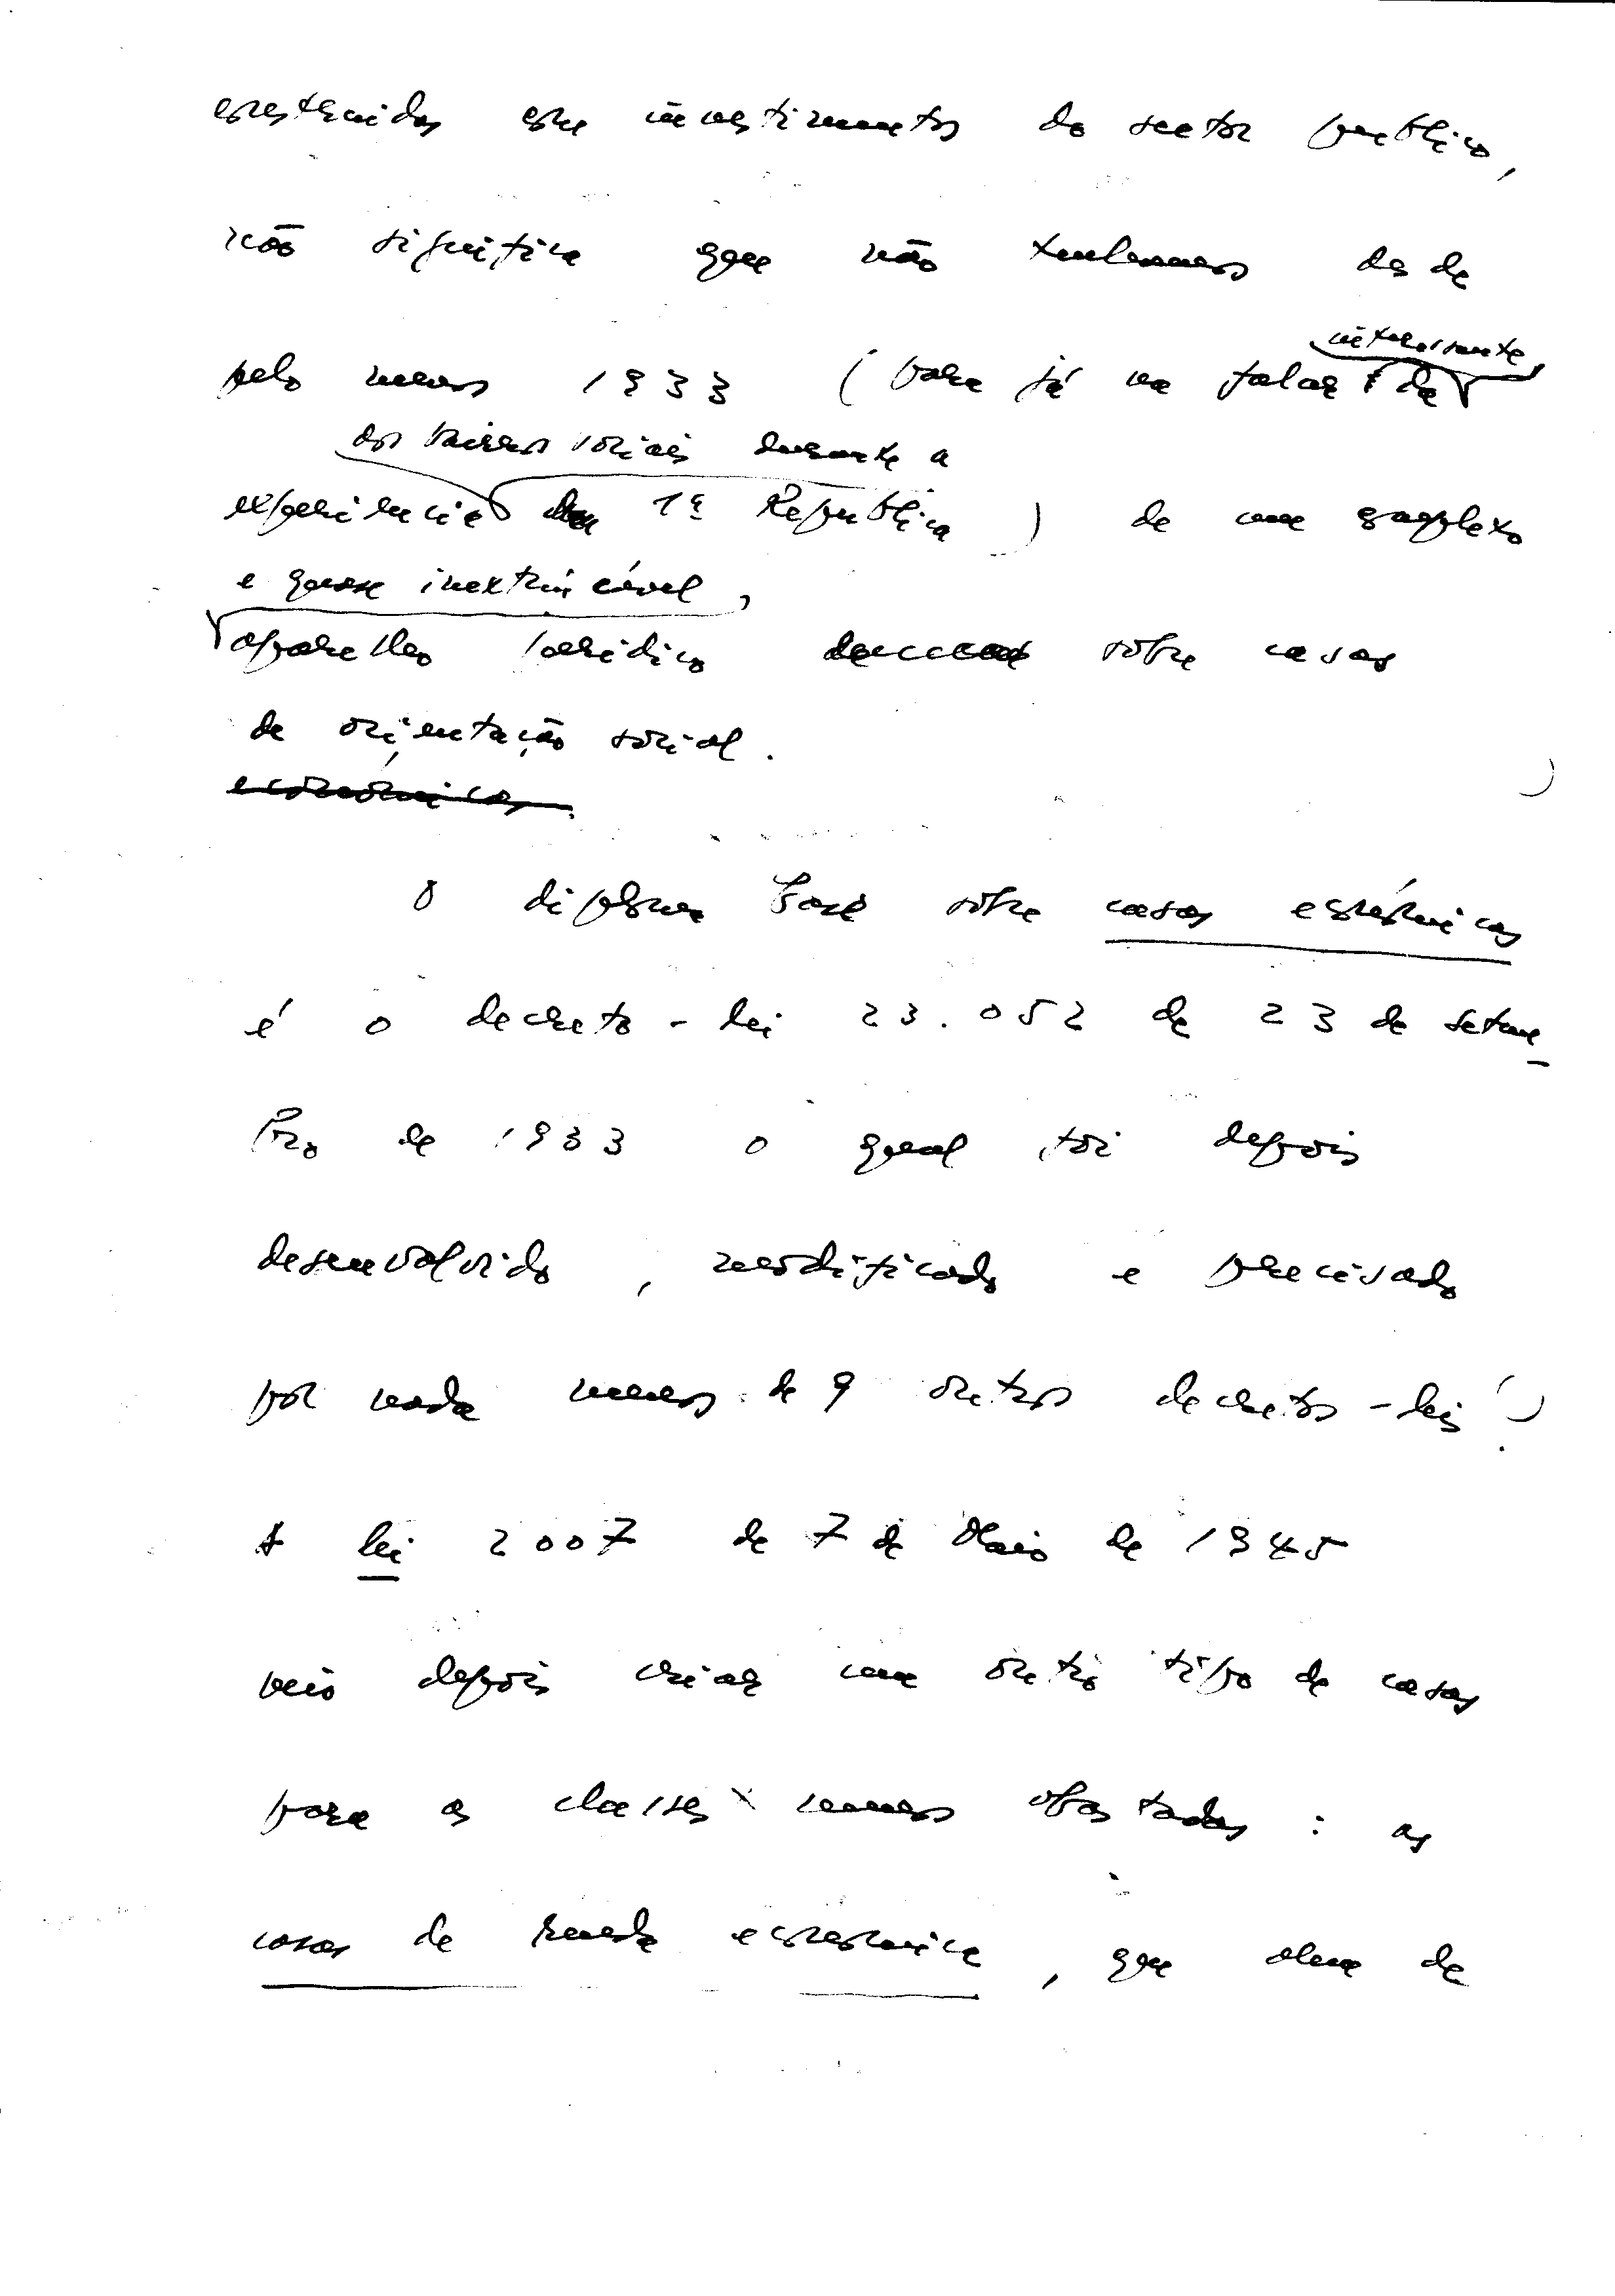 construidas em investimentos do sector publico,
não significa que não tenhamos desde
interessante
pelo menos 1933 (para já não falar da
dos bairros sociais durante a
experiencia 1ª Republica) de um complexo
e quase inextrincável,
aparelho juridico sobre casas
de orientação social.
economicas
O diploma base sobre casas económicas
é o decreto-lei 23.052 de 23 de Setem-
bro de 1933 o qual foi depois
desenvolvido, modificado e precisado
por nada menos de 9 outros decretos-leis!
A lei 2007 de 7 de Maio de 1945
veio depois criar um outro tipo de casas
para as classes menos abastadas: as
casas de renda economica, que alem de